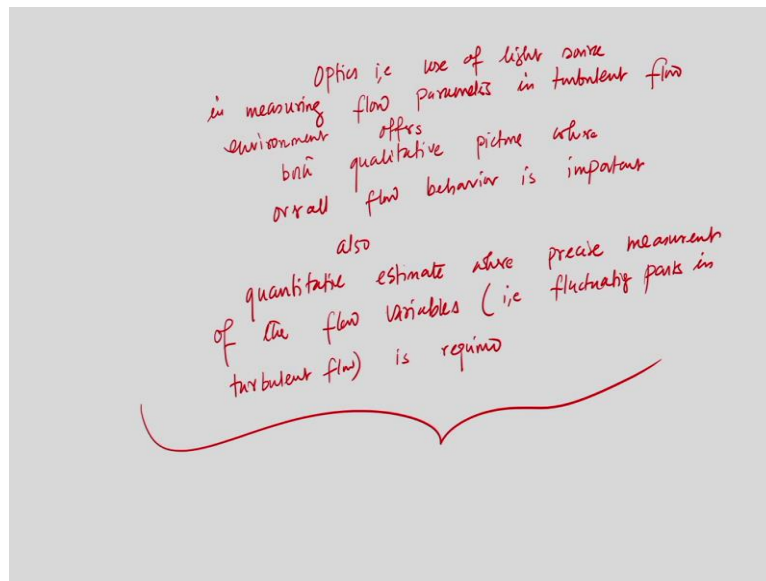 Optics i,e use of light source
in measuring flow parameters in turbulent flow
environment offers
both qualitative picture where
overall flow behavior is important
also
quantitative estimate where precise measurement
of the flow variables (i,e fluctuating parts in
turbulent flow) is required